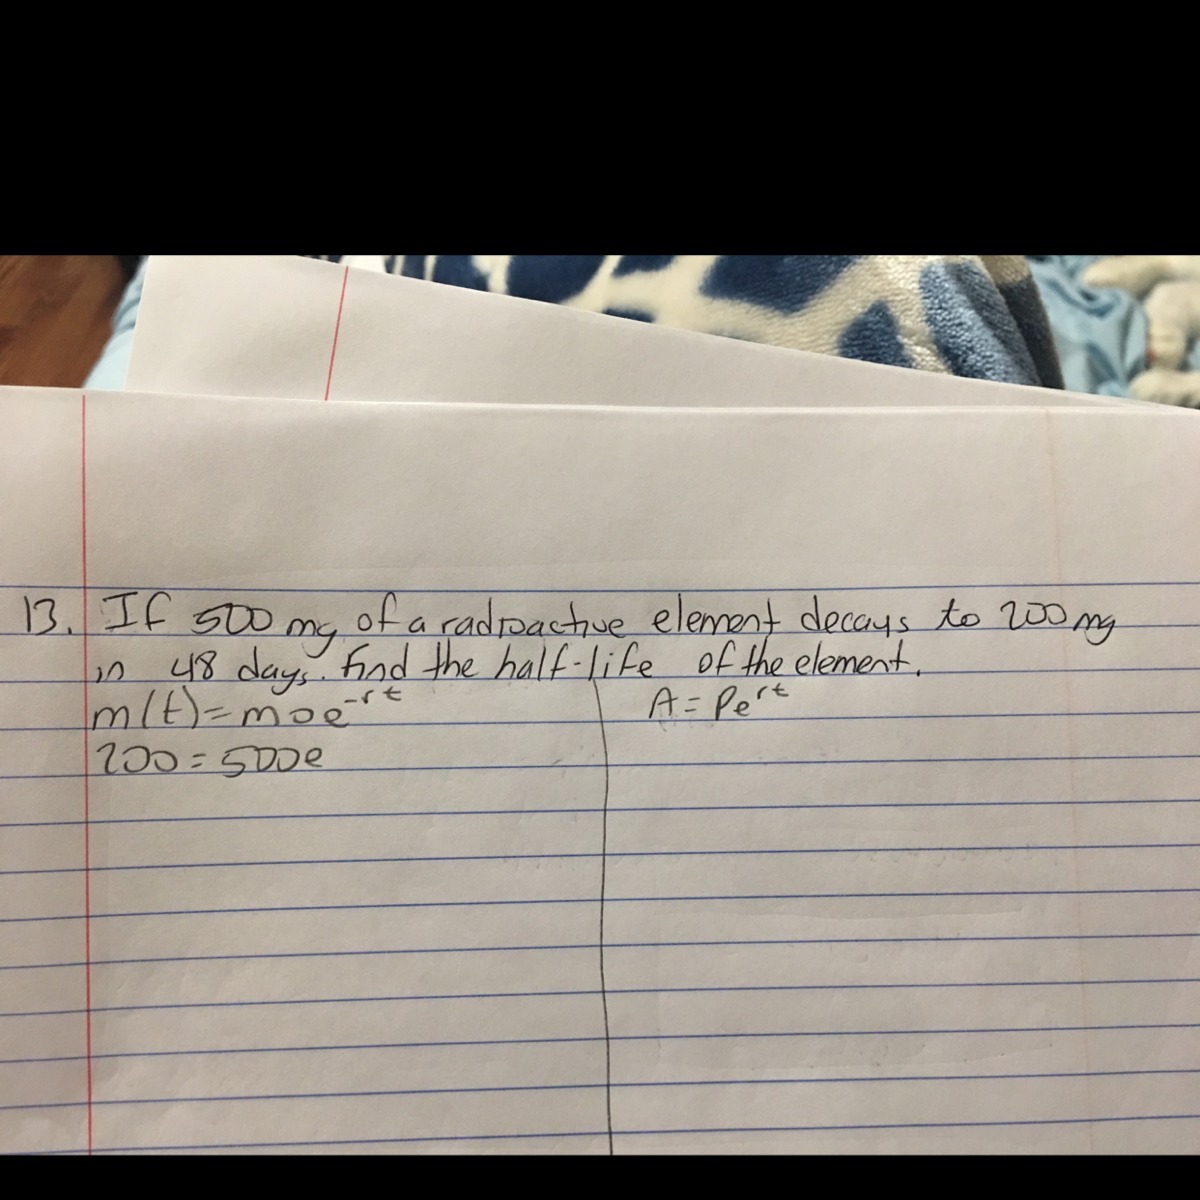 13. If 500 mg of a radioactive element decays to 200 mg
in 48 days. find the half-life of the element.
m(t) = moe^-rt
A = Pe^rt
200 = 500e